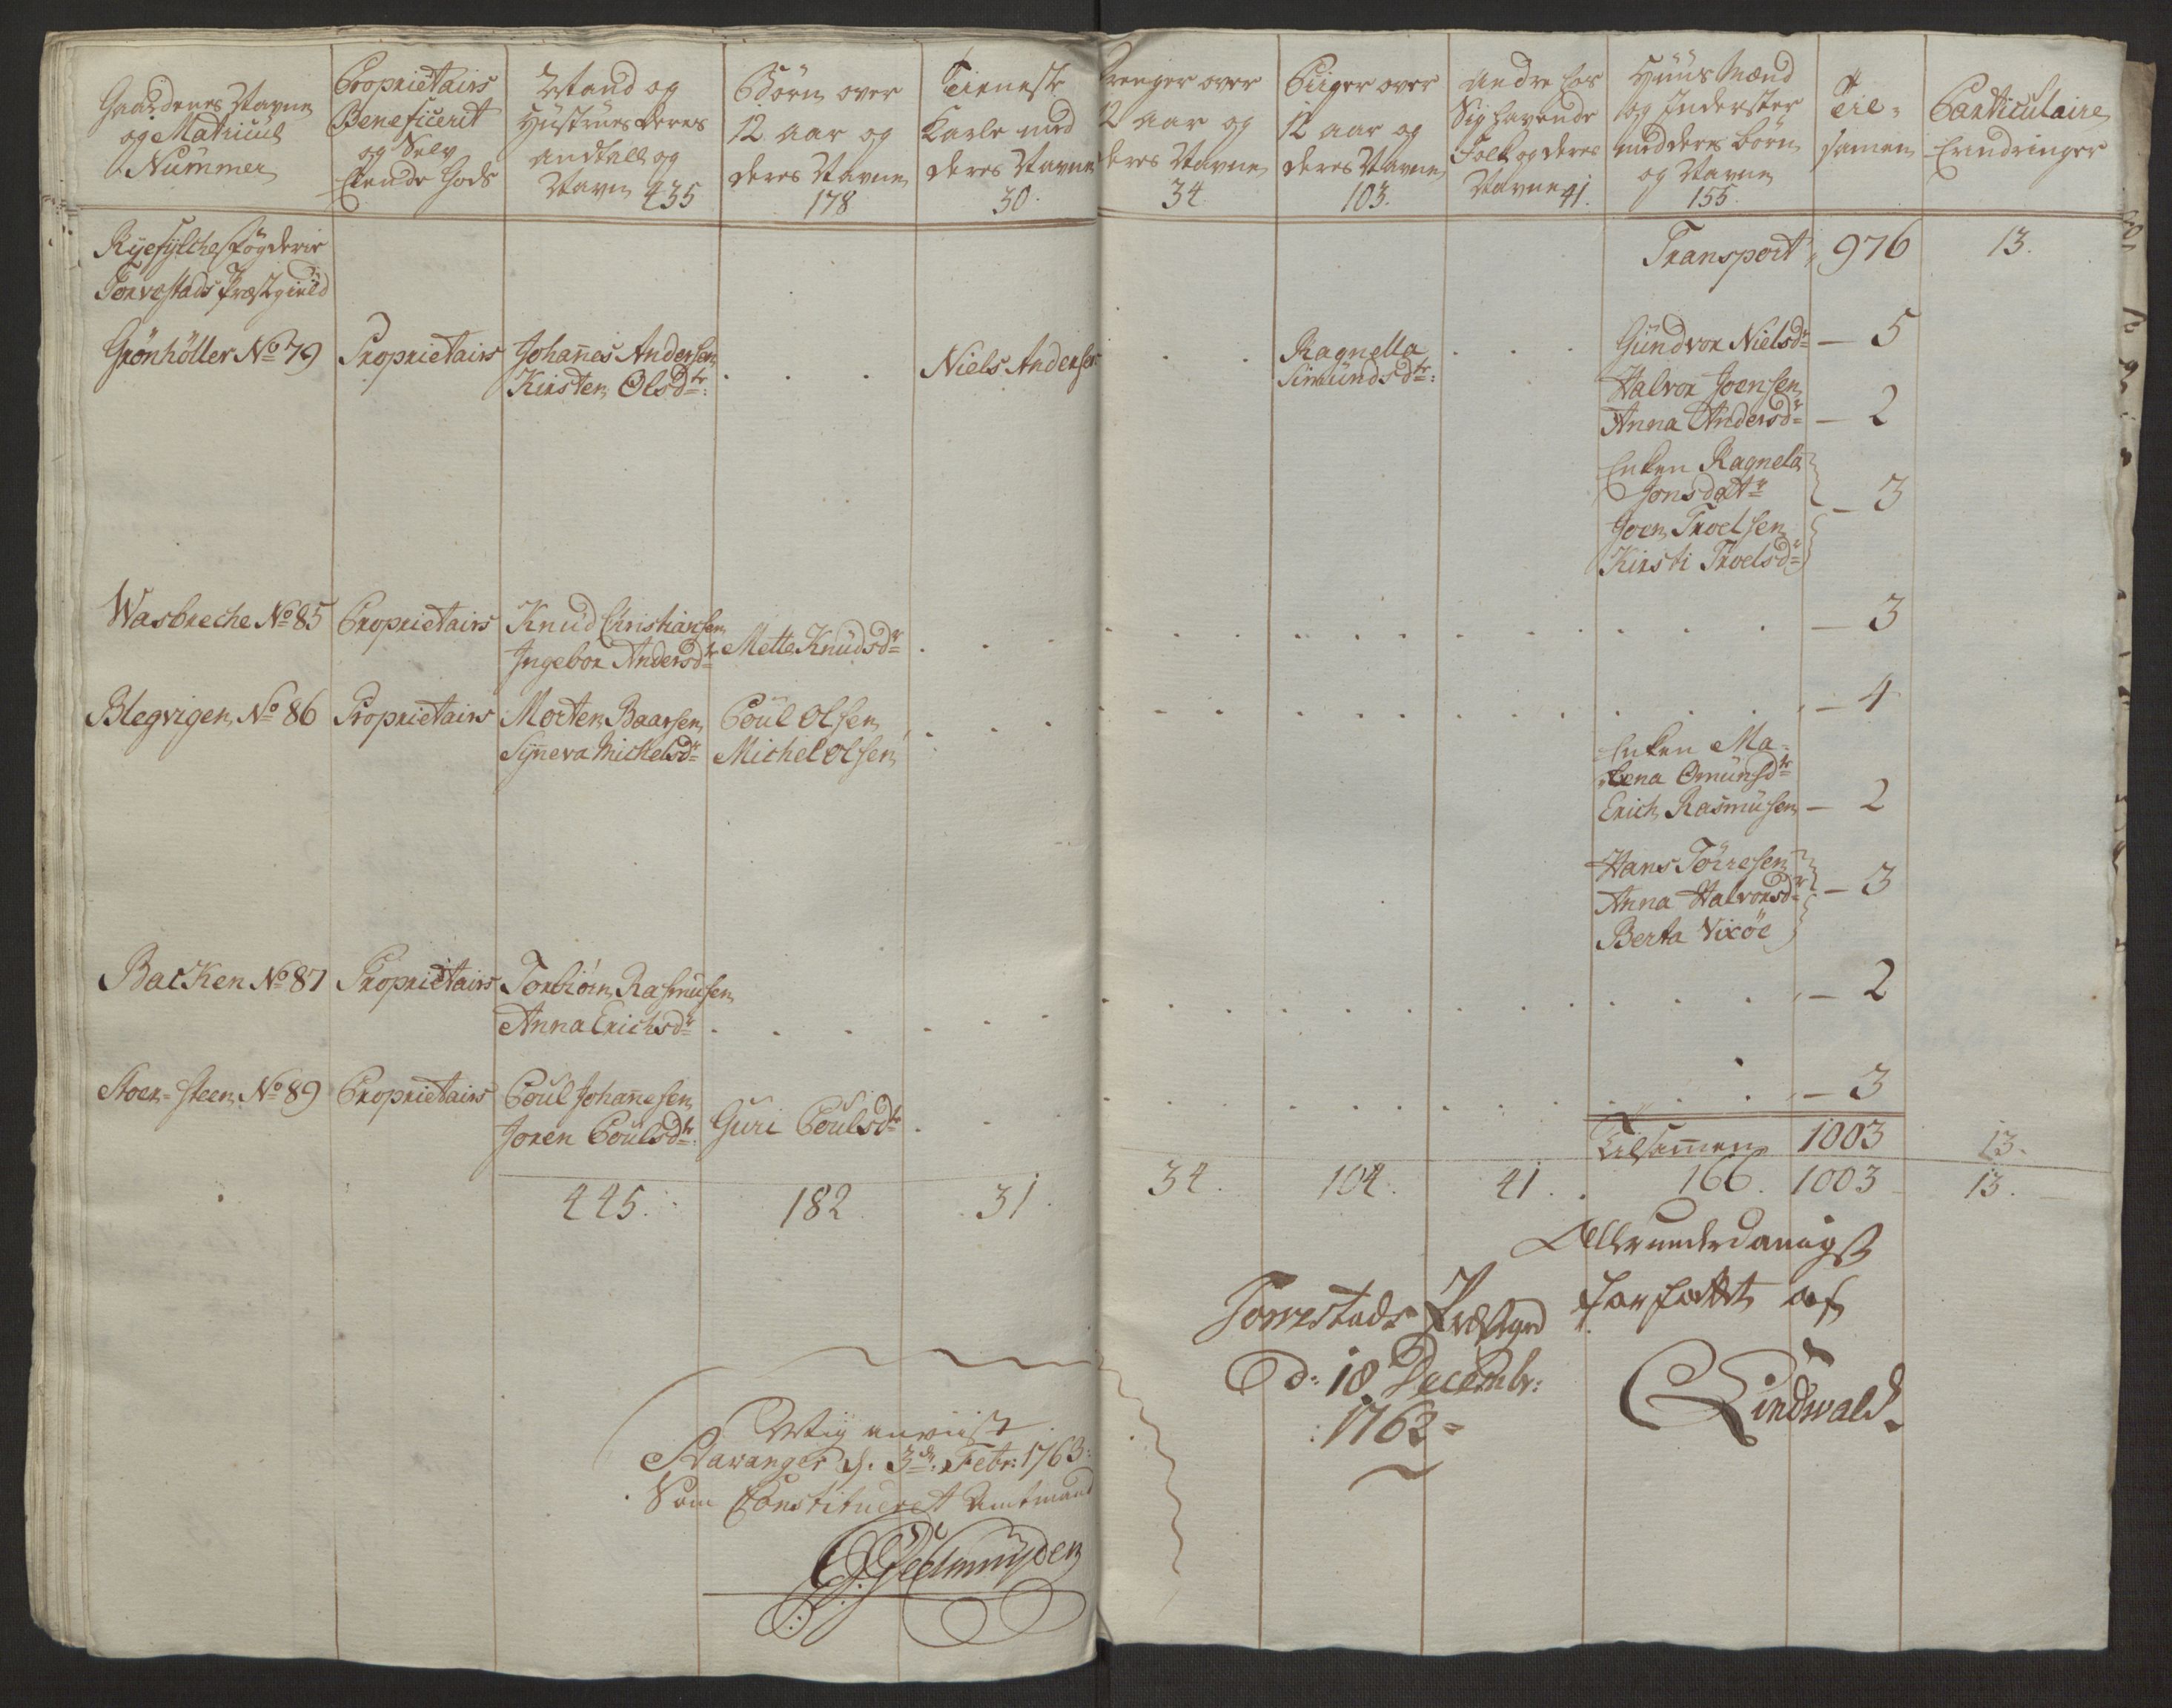 Gaardenes Navne
og Matricul
Nummer
Proprietairs
Beneficerit
og Selv
Eyende Gods
Mand og
Hustrues deres
Andtall og
Navn 435
Børn over
12 aar og
deres Navne
178
Tieneste
Karle med
deres Navne
30.
Drenger over
12 aar og
deres Navne
34.
Piiger over
12 aar og
deres Navne
103.
Andre Løs
Folk og deres
Navne 41.
Huus Mænd
og Inderster
med deres børn
og Navne
155.
Til-
samen
Particulaire
Erindringer
Ryefylche Fogderie
Torvestads Præstegield
Transport 976 13.
Grönhöller No 79 Proprietairs Johanes Andersen . . . Niels Andersen . . Ragnella . . . Gundvor Nielsdr — 5
Kirsten Olsdtr: Simundsdtr:
Halvor Joensen
Anna Andersdr — 2
Enken Ragnela
Jonsdatr — 3
Joen Troelsen
Kirsti Troelsdr
Wasbreche No 85 Proprietairs Knud Christiansen — 3
Ingebor Andersdr Mette Knudsdr
Blegvigen No 86 Proprietairs Morten Baarsen Poul Olsen — 4
Syneva Michelsdr Michel Olsen
Enken Ma-
lena Omunsdtr
Erich Rasmusen — 2
Hans Törresen
Anna Halvorsdr — 3
Berta Vixöe
Backen No 87 Proprietairs Torbiörn Rasmusen — 2
Anna Erichsdr
Stoer-steen No 89 Proprietairs Poul Johanesen — 3
Joren Poulsdtr: Guri Poulsdtr
Tilsamen 1003 13.
445. 182 31. 34. 104. 41. 166. 1003 13.
Allerunderdanigst
forfattet af
Torvestads Præstegrd
d: 18 Decembr:
1762
Lindwald
Rigtig anviist
Stavanger d. 3de Febr: 1763:
Som Constitueret Amtmand
Geelmuyden